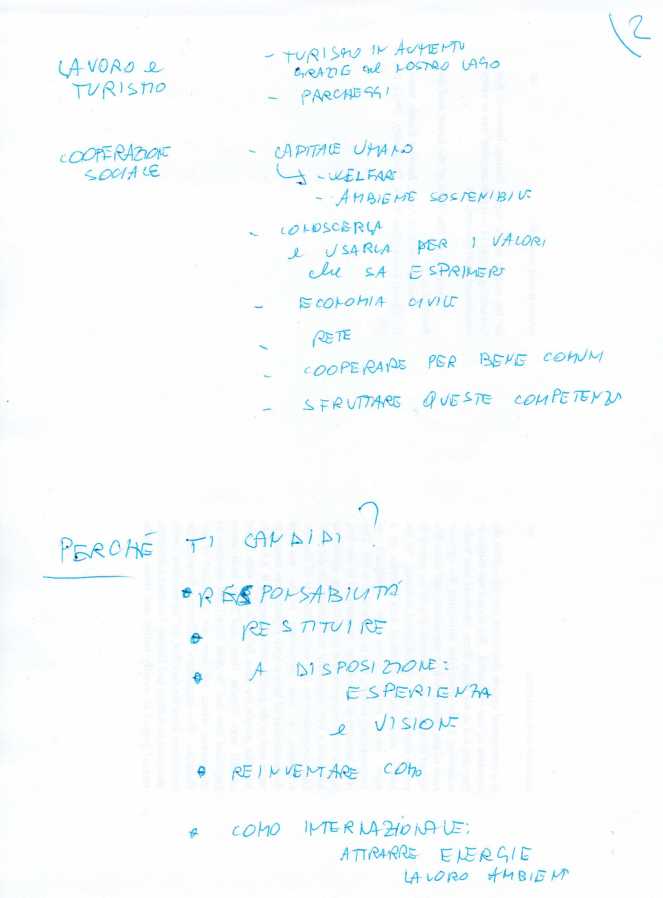 2
LAVORO e
TURISMO
- TURISMO IN AUMENTO
GRAZIE al NOSTRO LAGO
- PARCHEGGI
COOPERAZIONE
SOCIALE
- CAPITALE UMANO
↳ - WELFARE
- AMBIENTE SOSTENIBILE
- CONOSCERLA
e USARLA PER I VALORI
che SA ESPRIMERE
- ECONOMIA CIVILE
- RETE
- COOPERARE PER BENE COMUNE
- SFRUTTARE QUESTE COMPETENZE
PERCHÉ TI CANDIDI?
• RESPONSABILITÀ
• RESTITUIRE
• A DISPOSIZIONE:
ESPERIENZA
e VISIONE
• REINVENTARE COMO
• COMO INTERNAZIONALE:
ATTRARRE ENERGIE
LAVORO AMBIENT